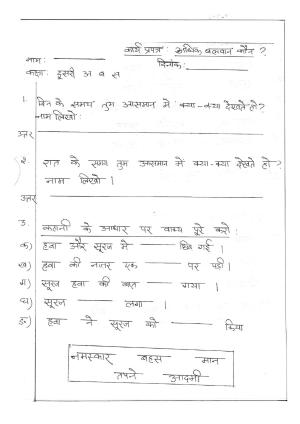 कार्य प्रपत्र : अधिक बलवान कौन ?
नाम: दिनांक:
कक्षा: दूसरी अ ब स
1. दिन के समय तुम आसमान में क्या-क्या देखते हो?
नाम लिखो:
उत्तर
2. रात के समय तुम आसमान में क्या-क्या देखते हो?
नाम लिखो ।
उत्तर
3. कहानी के आधार पर वाक्य पूरे करो:
क) हवा और सूरज में ——— छिड़ गई ।
ख) हवा की नजर एक ——— पर पड़ी ।
ग) सूरज हवा की बात ——— गया ।
घ) सूरज ——— लगा ।
ङ) हवा ने सूरज को ——— किया
नमस्कार बहस मान
तपने आदमी